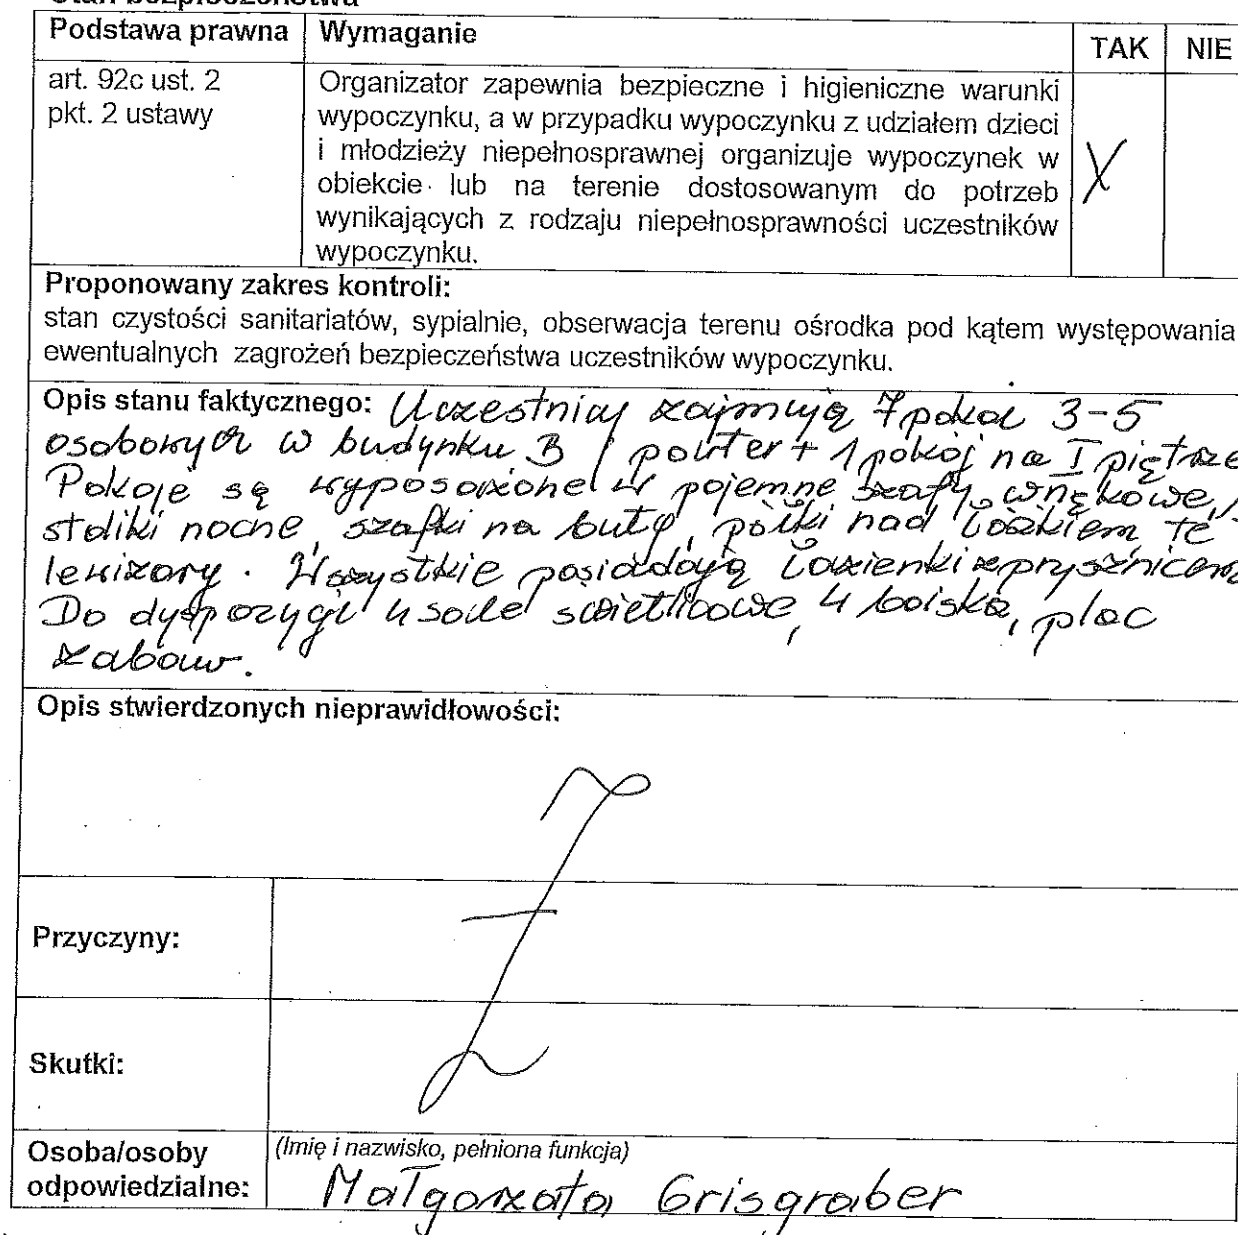 Stan bezpieczeństwa
Podstawa prawna Wymaganie TAK NIE
art. 92c ust. 2
pkt. 2 ustawy
Organizator zapewnia bezpieczne i higieniczne warunki
wypoczynku, a w przypadku wypoczynku z udziałem dzieci
i młodzieży niepełnosprawnej organizuje wypoczynek w
obiekcie lub na terenie dostosowanym do potrzeb
wynikających z rodzaju niepełnosprawności uczestników
wypoczynku.
X
Proponowany zakres kontroli:
stan czystości sanitariatów, sypialnie, obserwacja terenu ośrodka pod kątem występowania
ewentualnych zagrożeń bezpieczeństwa uczestników wypoczynku.
Opis stanu faktycznego: Uczestnicy zajmują 7 pokoi 3-5
osobowych w budynku B / parter + 1 pokój na I piętrze
Pokoje są wyposażone w pojemne szafy wnękowe,
stoliki nocne, szafki na buty, półki nad łóżkiem, te
lewizory. Wszystkie posiadają łazienki z prysznicem
Do dyspozycji 4 sale świetlicowe, 4 boiska, plac
zabaw.
Opis stwierdzonych nieprawidłowości:
Przyczyny:
Skutki:
Osoba/osoby
odpowiedzialne:
(Imię i nazwisko, pełniona funkcja)
Małgorzata Grisgraber